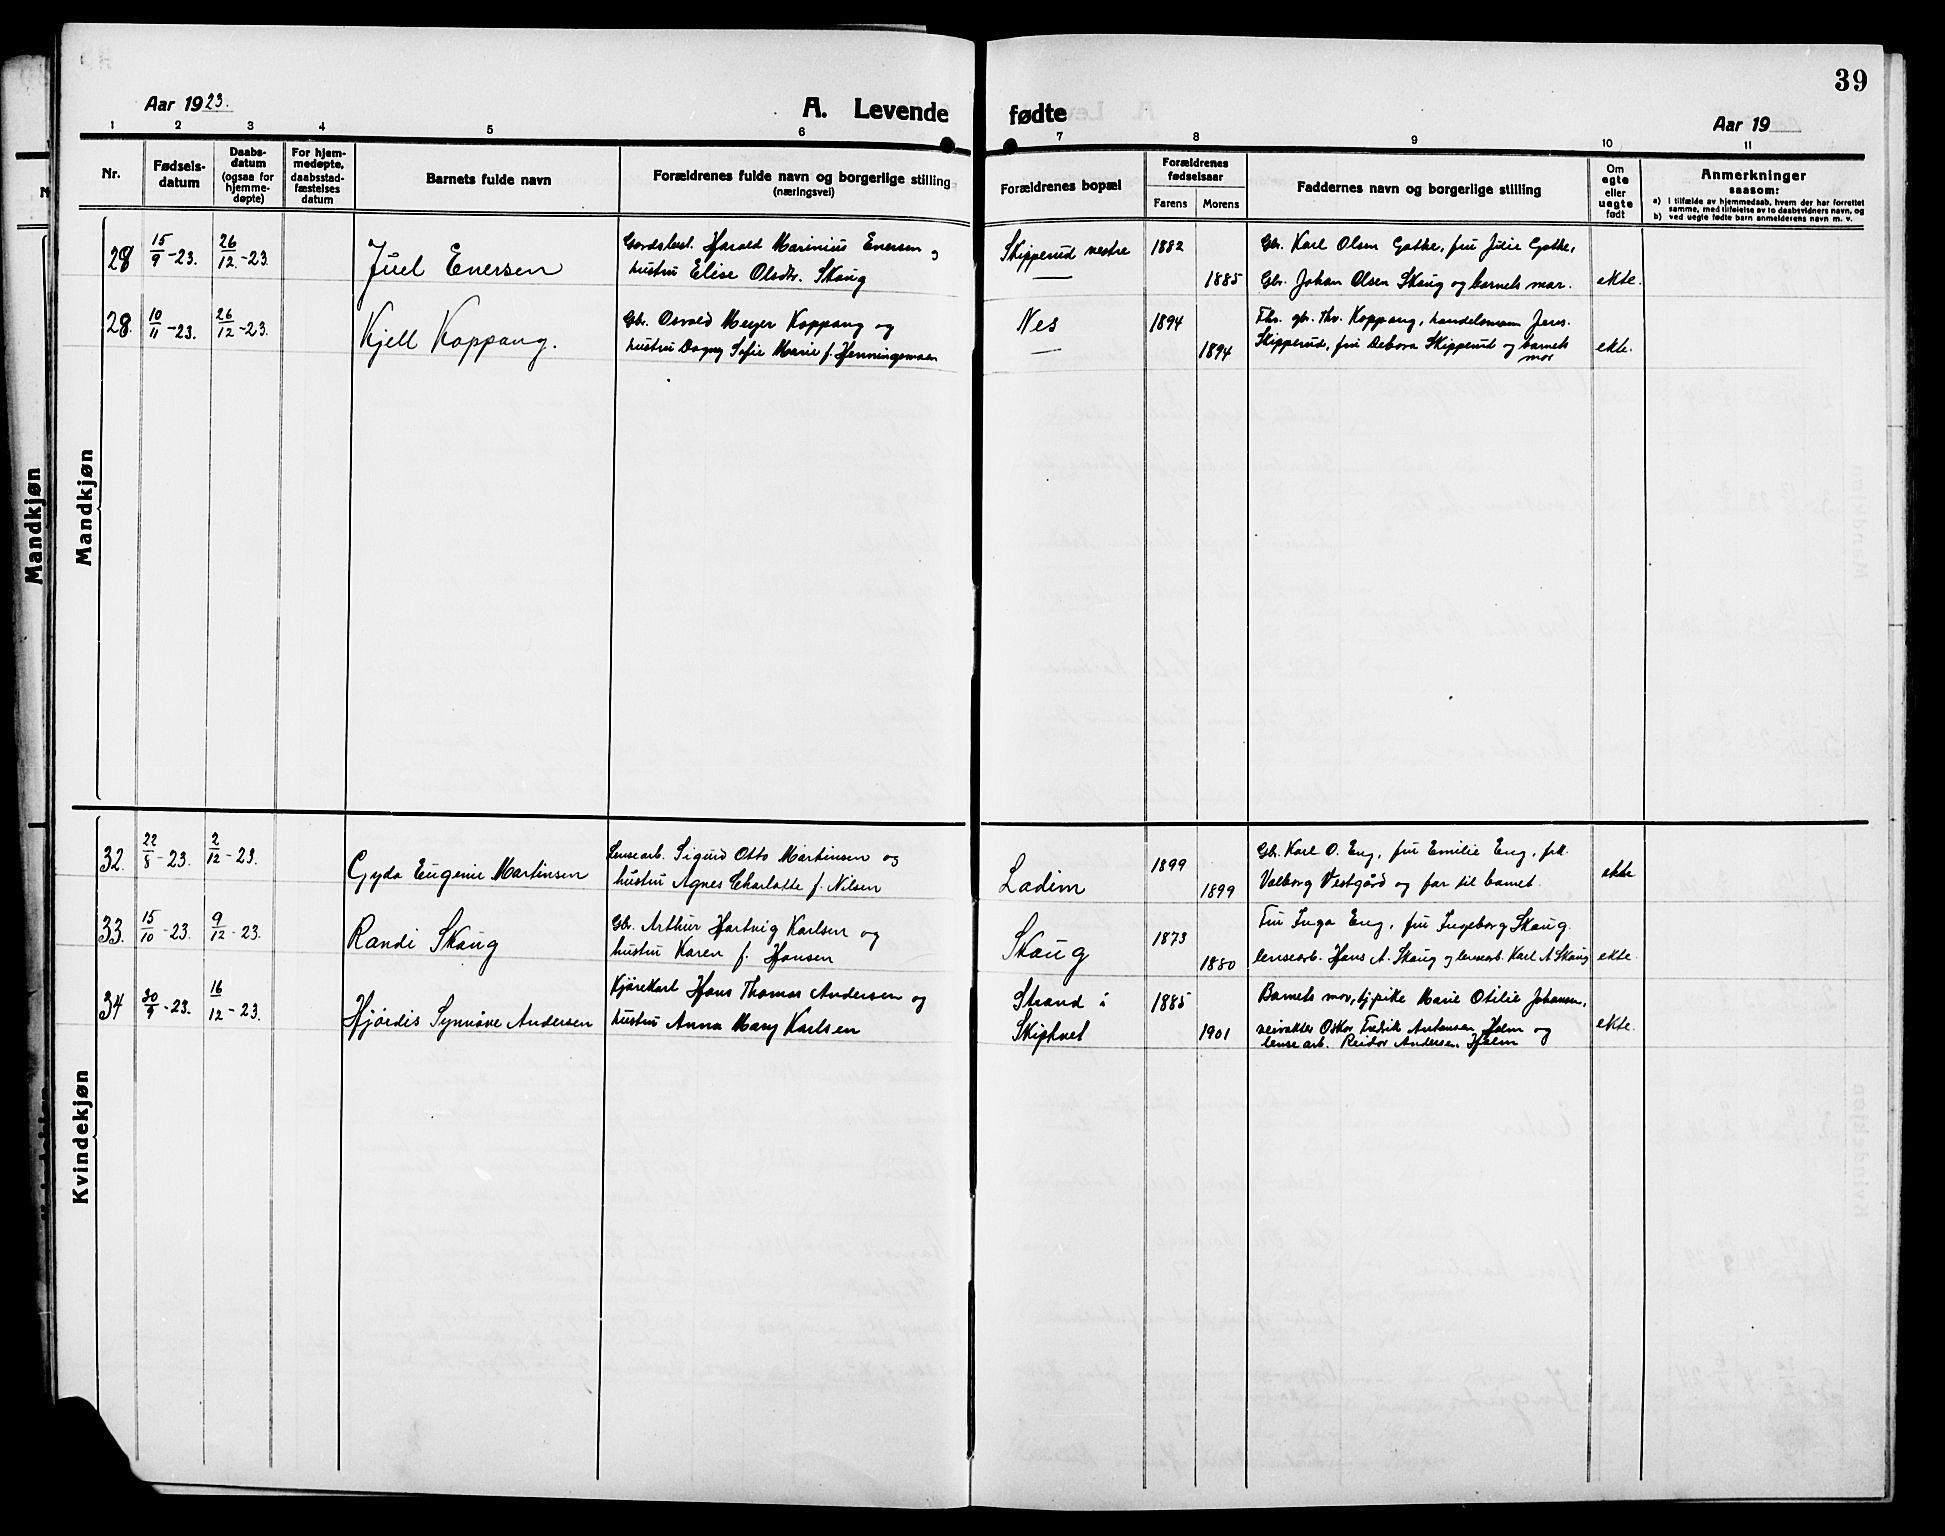 39
Aar 1923.
A. Levende fødte
Aar 19
1 2 3 4 5 6 7 8 9 10 11
Nr.
Fødsels-
datum
Daabs-
datum
(ogsaa for
hjemme-
døpte)
For hjem-
medøpte,
daabsstad-
fæstelses
datum
Barnets fulde navn
Forældrenes fulde navn og borgerlige stilling
(næringsvei)
Forældrenes bopæl
Forældrenes
fødselsaar
Farens Morens
Faddernes navn og borgerlige stilling
Om
egte
eller
uegte
født
Anmerkninger
saasom:
a) I tilfælde av hjemmedaab, hvem der har forrettet
samme, med tilføielse av to daabsvidners navn, og
b) ved uegte fødte barn anmelderens navn m. v.
Mandkjøn
Mandkjøn
28 15/9-23. 26/12-23 Juel Enersen
Gardsbest. Harald Marinius Enersen og
hustru Elise Olsdtr. Skaug
Skipperud vestre — 1882 1885
Gbr. Karl Olsen Gatke, fru Julie Gatke,
Gbr. Johan Olsen Skaug og barnets mor. ekte.
28. 10/11-23. 26/12-23. Kjell Koppang.
Gbr. Osvald Meyer Koppang og
hustru Dagny Sofie Marie f. Henningsmoen
Nes — 1894 1894
Fhv. gbr. Thv. Koppang, handelsmann Jens
Skipperud, fru Debora Skipperud og barnets
mor ekte.
Kvindekjøn
32. 22/8-23. 2/12-23. Gyda Eugenie Martinsen
Lensearb. Sigurd Otto Martinsen og
hustru Agnes Charlotte f. Nilsen
Ladim 1899 1899
Gbr. Karl O. Eng, fru Emilie Eng, frk.
Valborg Vestgård og far til barnet. ekte
33. 15/10-23. 9/12-23. Randi Skaug
Gbr. Arthur Hartvig Karlsen og
hustru Karen f. Hansen
Skaug 1873 1880
Fru Inga Eng, fru Ingeborg Skaug.
lensearb. Hans A. Skaug og lensearb. Karl A Skaug ekte.
34 30/9-23. 16/12-23. Hjördis Synnöve Andersen
Kjörekarl Hans Thomas Andersen og
hustru Anna Mary Karlsen
Strand i
Skiptvet 1885 1901
Barnets mor, tj.pike Marie Otilie Johansen,
veivokter Oskar Fredrik Antonsen, Holm og
lensearb. Reidar Andersen Holm ekte.